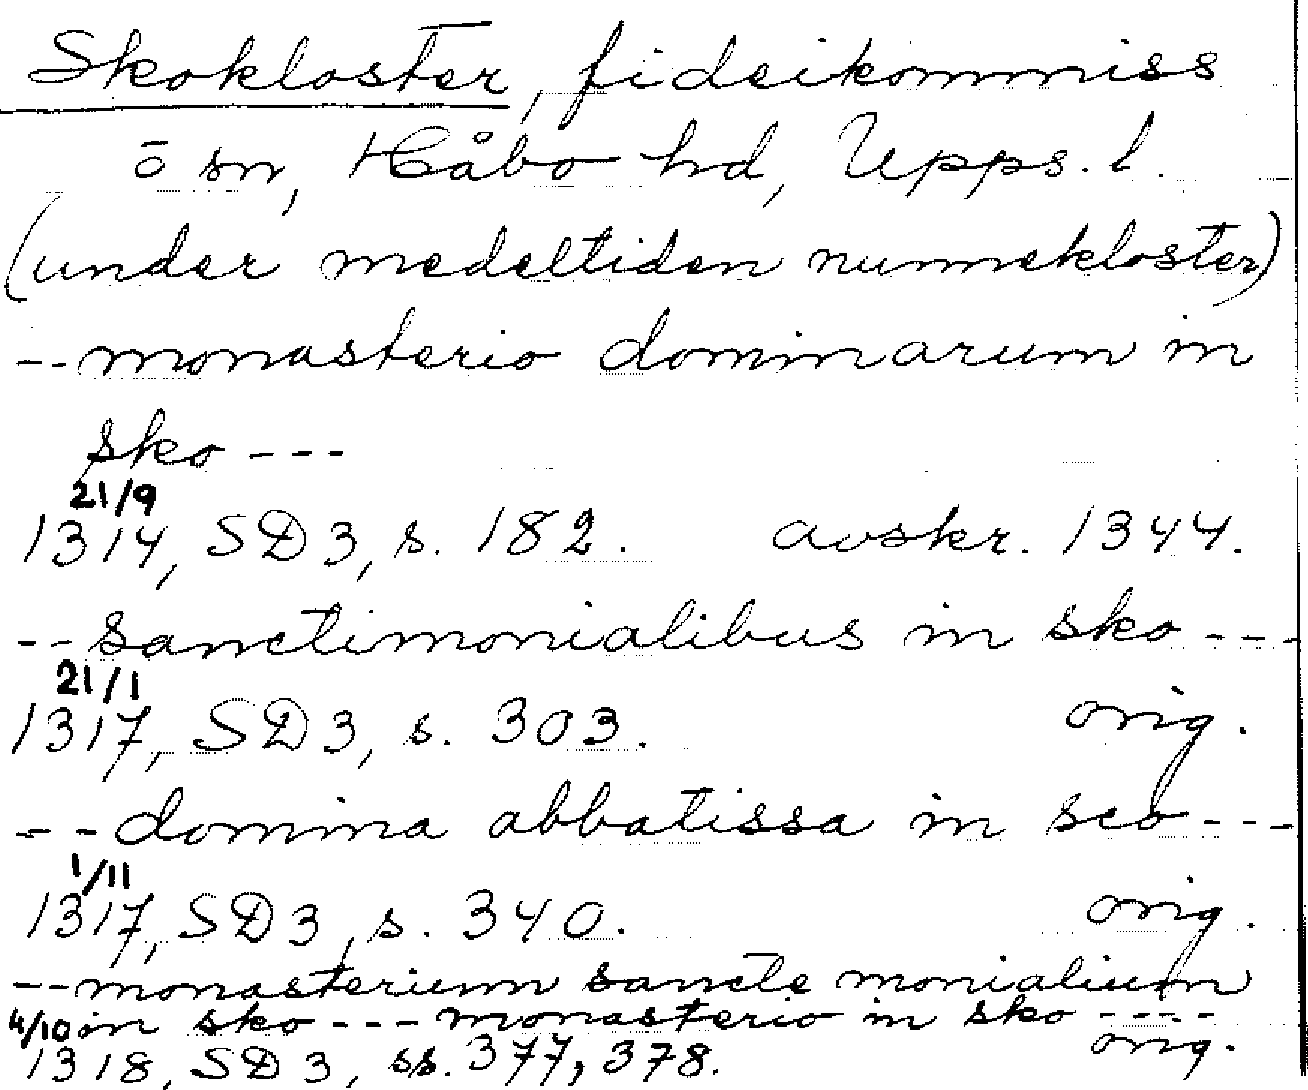 Skokloster, fideikommiss
ō sn, Håbo hd, Upps. l.
(under medeltiden nunnekloster)
-- monasterio dominarum in
sko ---
21/9
1314, SD 3, s. 182. avskr. 1344.
-- sanctimonialibus in sko ---
21/1
1317, SD 3, s. 303. orig.
-- domina abbatissa in sco ---
1/11
1317, SD 3, s. 340. orig.
-- monasterium sancte monialium
4/10 in sko --- monasterio in sko ----
1318, SD 3, ss. 377, 378. orig.